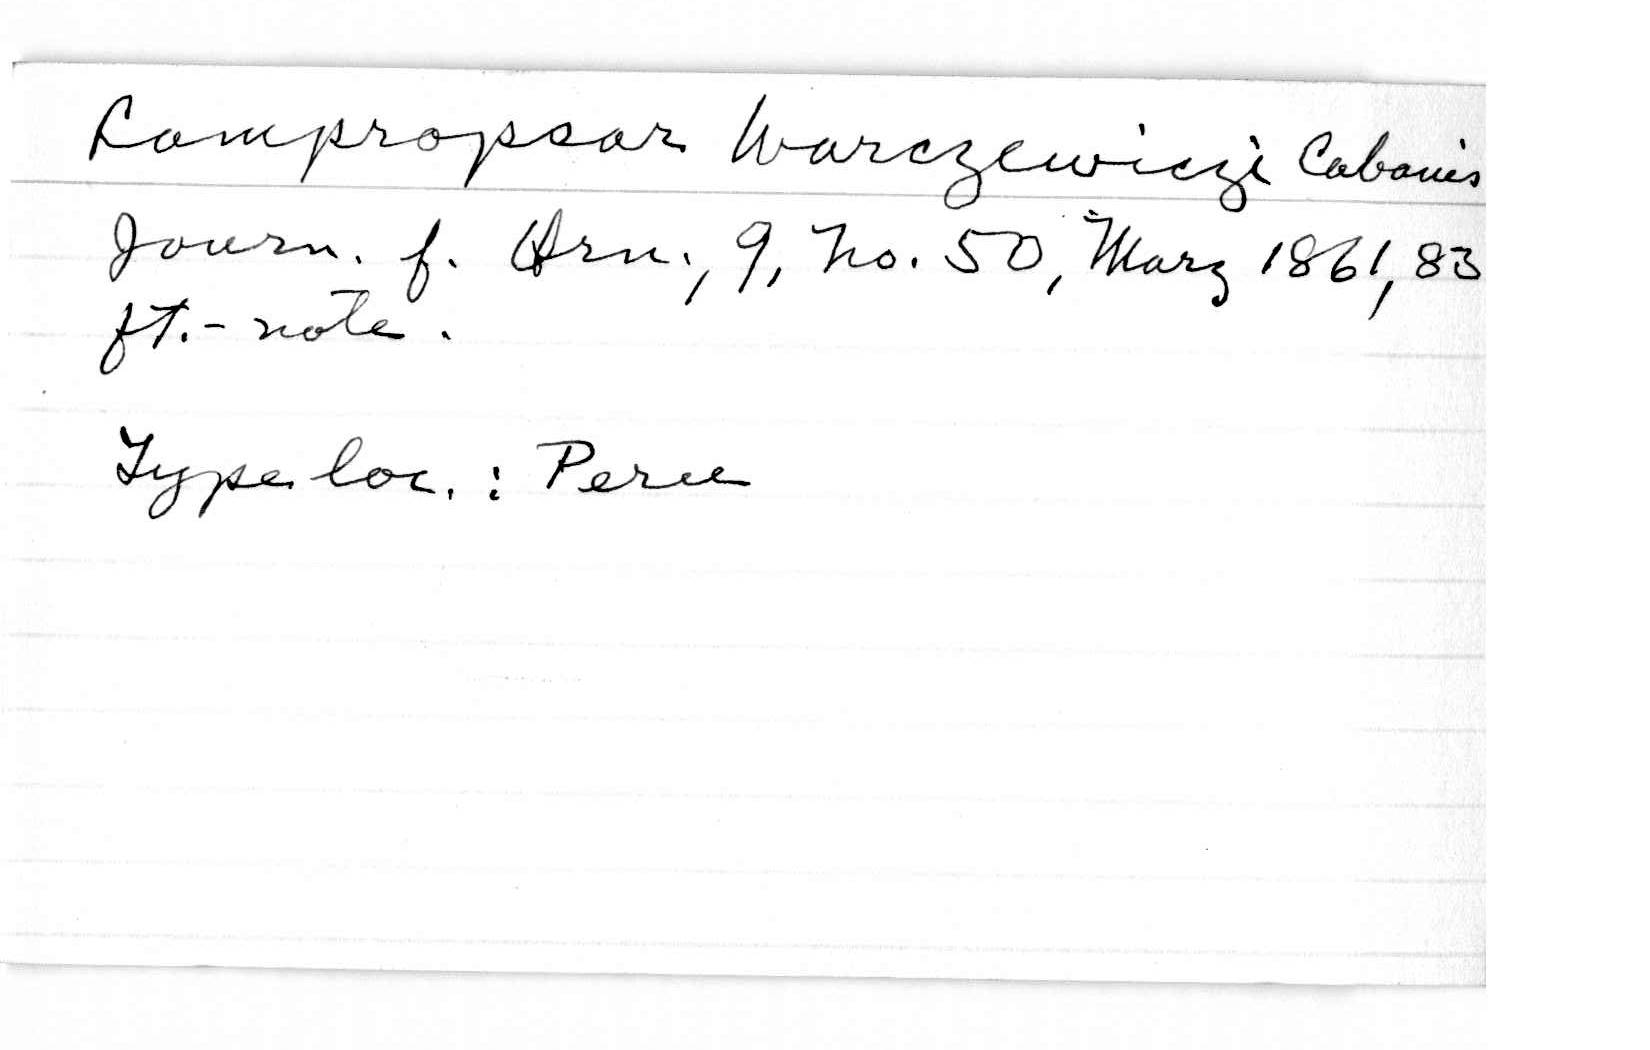 Lampropsar Warczewiczi Cabanis
Journ. f. Orn., 9, No. 50, März 1861, 83
ft.-note.
Type loc.: Peru